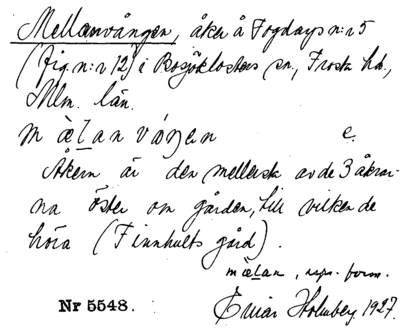 Mellanvången, åker å Fogdarp n:r 5
(fig. n:r 12) i Bosjöklosters sn, Frosta hd,
Mlm. län.
mæ̀lanváŋen e.
Åkern är den mellersta av de 3 åkrar-
na öster om gården, till vilken de
höra (Finnhults gård).
mæ̀lan, upr. form.
Nr 5548. Einar Holmberg 1927.